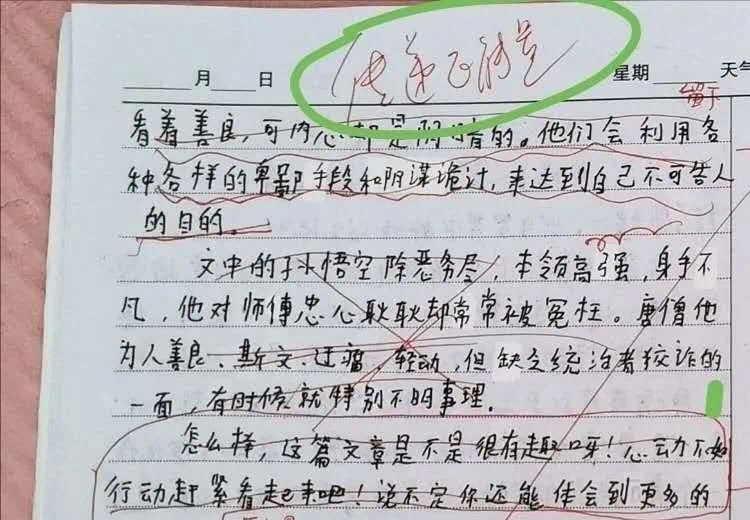 传递正能量
月 日 星期 天气
留下
看着善良，可内心却是阴暗的。他们会利用各
种各样的卑鄙手段和阴谋诡计，来达到自己不可告人
的目的。
文中的孙悟空除恶务尽，本领高强，身手不
凡，他对师傅忠心耿耿却常常被冤枉。唐僧他
为人善良、斯文、迂腐、轻动，但缺乏统治者狡诈的
一面，有时候就特别不明事理。
怎么样，这篇文章是不是很有趣呀！心动不如
行动赶紧看起来吧！说不定你还能体会到更多的